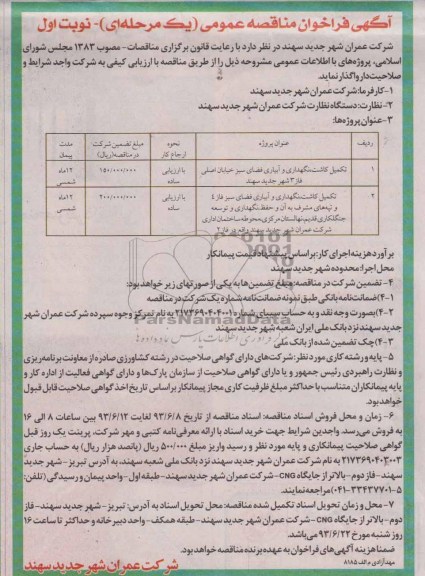 آگهی فراخوان مناقصه عمومی (یک مرحله‌ای)- نوبت اول
شرکت عمران شهر جدید سهند در نظر دارد با رعایت قانون برگزاری مناقصات- مصوب ۱۳۸۳ مجلس شورای
اسلامی، پروژه‌های با اطلاعات عمومی مشروحه ذیل را از طریق مناقصه با ارزیابی کیفی به شرکت واجد شرایط و
صلاحیت‌دار واگذار نماید.
۱-کارفرما: شرکت عمران شهر جدید سهند
۲- نظارت: دستگاه نظارت شرکت عمران شهر جدید سهند
۳-عنوان پروژه‌ها:
ردیف عنوان پروژه نحوه ارجاع کار مبلغ تضمین شرکت در مناقصه(ریال) مدت پیمان
۱ تکمیل کاشت،نگهداری و آبیاری فضای سبز خیابان اصلی فاز ۳ شهر جدید سهند با ارزیابی ساده ۱۵۰/۰۰۰/۰۰۰ ۱۲ماه شمسی
۲ تکمیل کاشت،نگهداری و آبیاری فضای سبز فاز ٤ با ارزیابی ساده ۲۰۰/۰۰۰/۰۰۰ ۱۲ماه شمسی
و تپه‌های مشرف به آن و حفظ،نگهداری و توسعه
جنگلکاری قدیم،نهالستان مرکزی،محوطه ساختمان اداری
شرکت عمران شهر جدید سهند واقع در فاز ۲
برآورد هزینه اجرای کار: براساس پیشنهاد قیمت پیمانکار
محل اجرا: محدوده شهر جدید سهند
۴- تضمین شرکت در مناقصه: مبلغ تضمین‌ها به یکی از صورتهای زیر خواهد بود:
۴-۱) ضمانت‌نامه بانکی طبق نمونه ضمانت‌نامه شماره یک شرکت در مناقصه
۴-۲) بصورت وجه نقد و به حساب سیبای شماره ۲۱۷۳۶۹۰۴۰۴۰۰۱ به نام تمرکز وجوه سپرده شرکت عمران شهر
جدید سهند نزد بانک ملی ایران شعبه شهر جدید سهند
۴-۳) چک تضمین شده از بانک ملی
۵- پایه و رشته کاری مورد نظر: شرکت‌های دارای گواهی صلاحیت در رشته کشاورزی صادره از معاونت برنامه‌ریزی
و نظارت راهبردی رئیس جمهور و یا دارای گواهی صلاحیت از سازمان پارک‌ها و دارای گواهی فعالیت از اداره کار و
پایه پیمانکاران متناسب با حداکثر مبلغ ظرفیت کاری مجاز پیمانکار براساس تاریخ اخذ گواهی صلاحیت قابل قبول
خواهد بود.
۶- زمان و محل فروش اسناد مناقصه: اسناد مناقصه از تاریخ ۹۳/۶/۸ لغایت ۹۳/۶/۱۲ بین ساعات ۸ الی ۱۶
به فروش می‌رسد. واجدین شرایط جهت خرید اسناد با ارائه معرفی‌نامه کتبی و مهر شرکت، پرینت یک روز قبل
گواهی صلاحیت پیمانکاری و پایه مورد نظر و رسید واریز مبلغ ۵۰۰/۰۰۰ ریال (پانصد هزار ریال) به حساب جاری
۲۱۷۳۶۹۰۴۰۳۰۰۳ به نام شرکت عمران شهر جدید سهند نزد بانک ملی شعبه سهند، به آدرس تبریز- شهر جدید
سهند-فاز دوم-بالاتر از جایگاه CNG-شرکت عمران شهر جدید سهند-طبقه اول-واحد پیمان و رسیدگی (تلفن:
۵-۳۳۴۳۷۷۰۱-۰۴۱) مراجعه نمایند.
۷- محل و زمان تحویل اسناد تکمیل شده مناقصه: محل تحویل اسناد به آدرس: تبریز- شهر جدید سهند-فاز
دوم-بالاتر از جایگاه CNG - شرکت عمران شهر جدید سهند- طبقه همکف- واحد دبیرخانه و حداکثر تا ساعت ۱۶
روز شنبه مورخ ۹۳/۶/۲۲ می‌باشد.
ضمنا هزینه آگهی‌های فراخوان به عهده برنده مناقصه خواهد بود.
مهدآزادی م الف ۸۱۸۵
شرکت عمران شهر جدید سهند
ParsNamadData